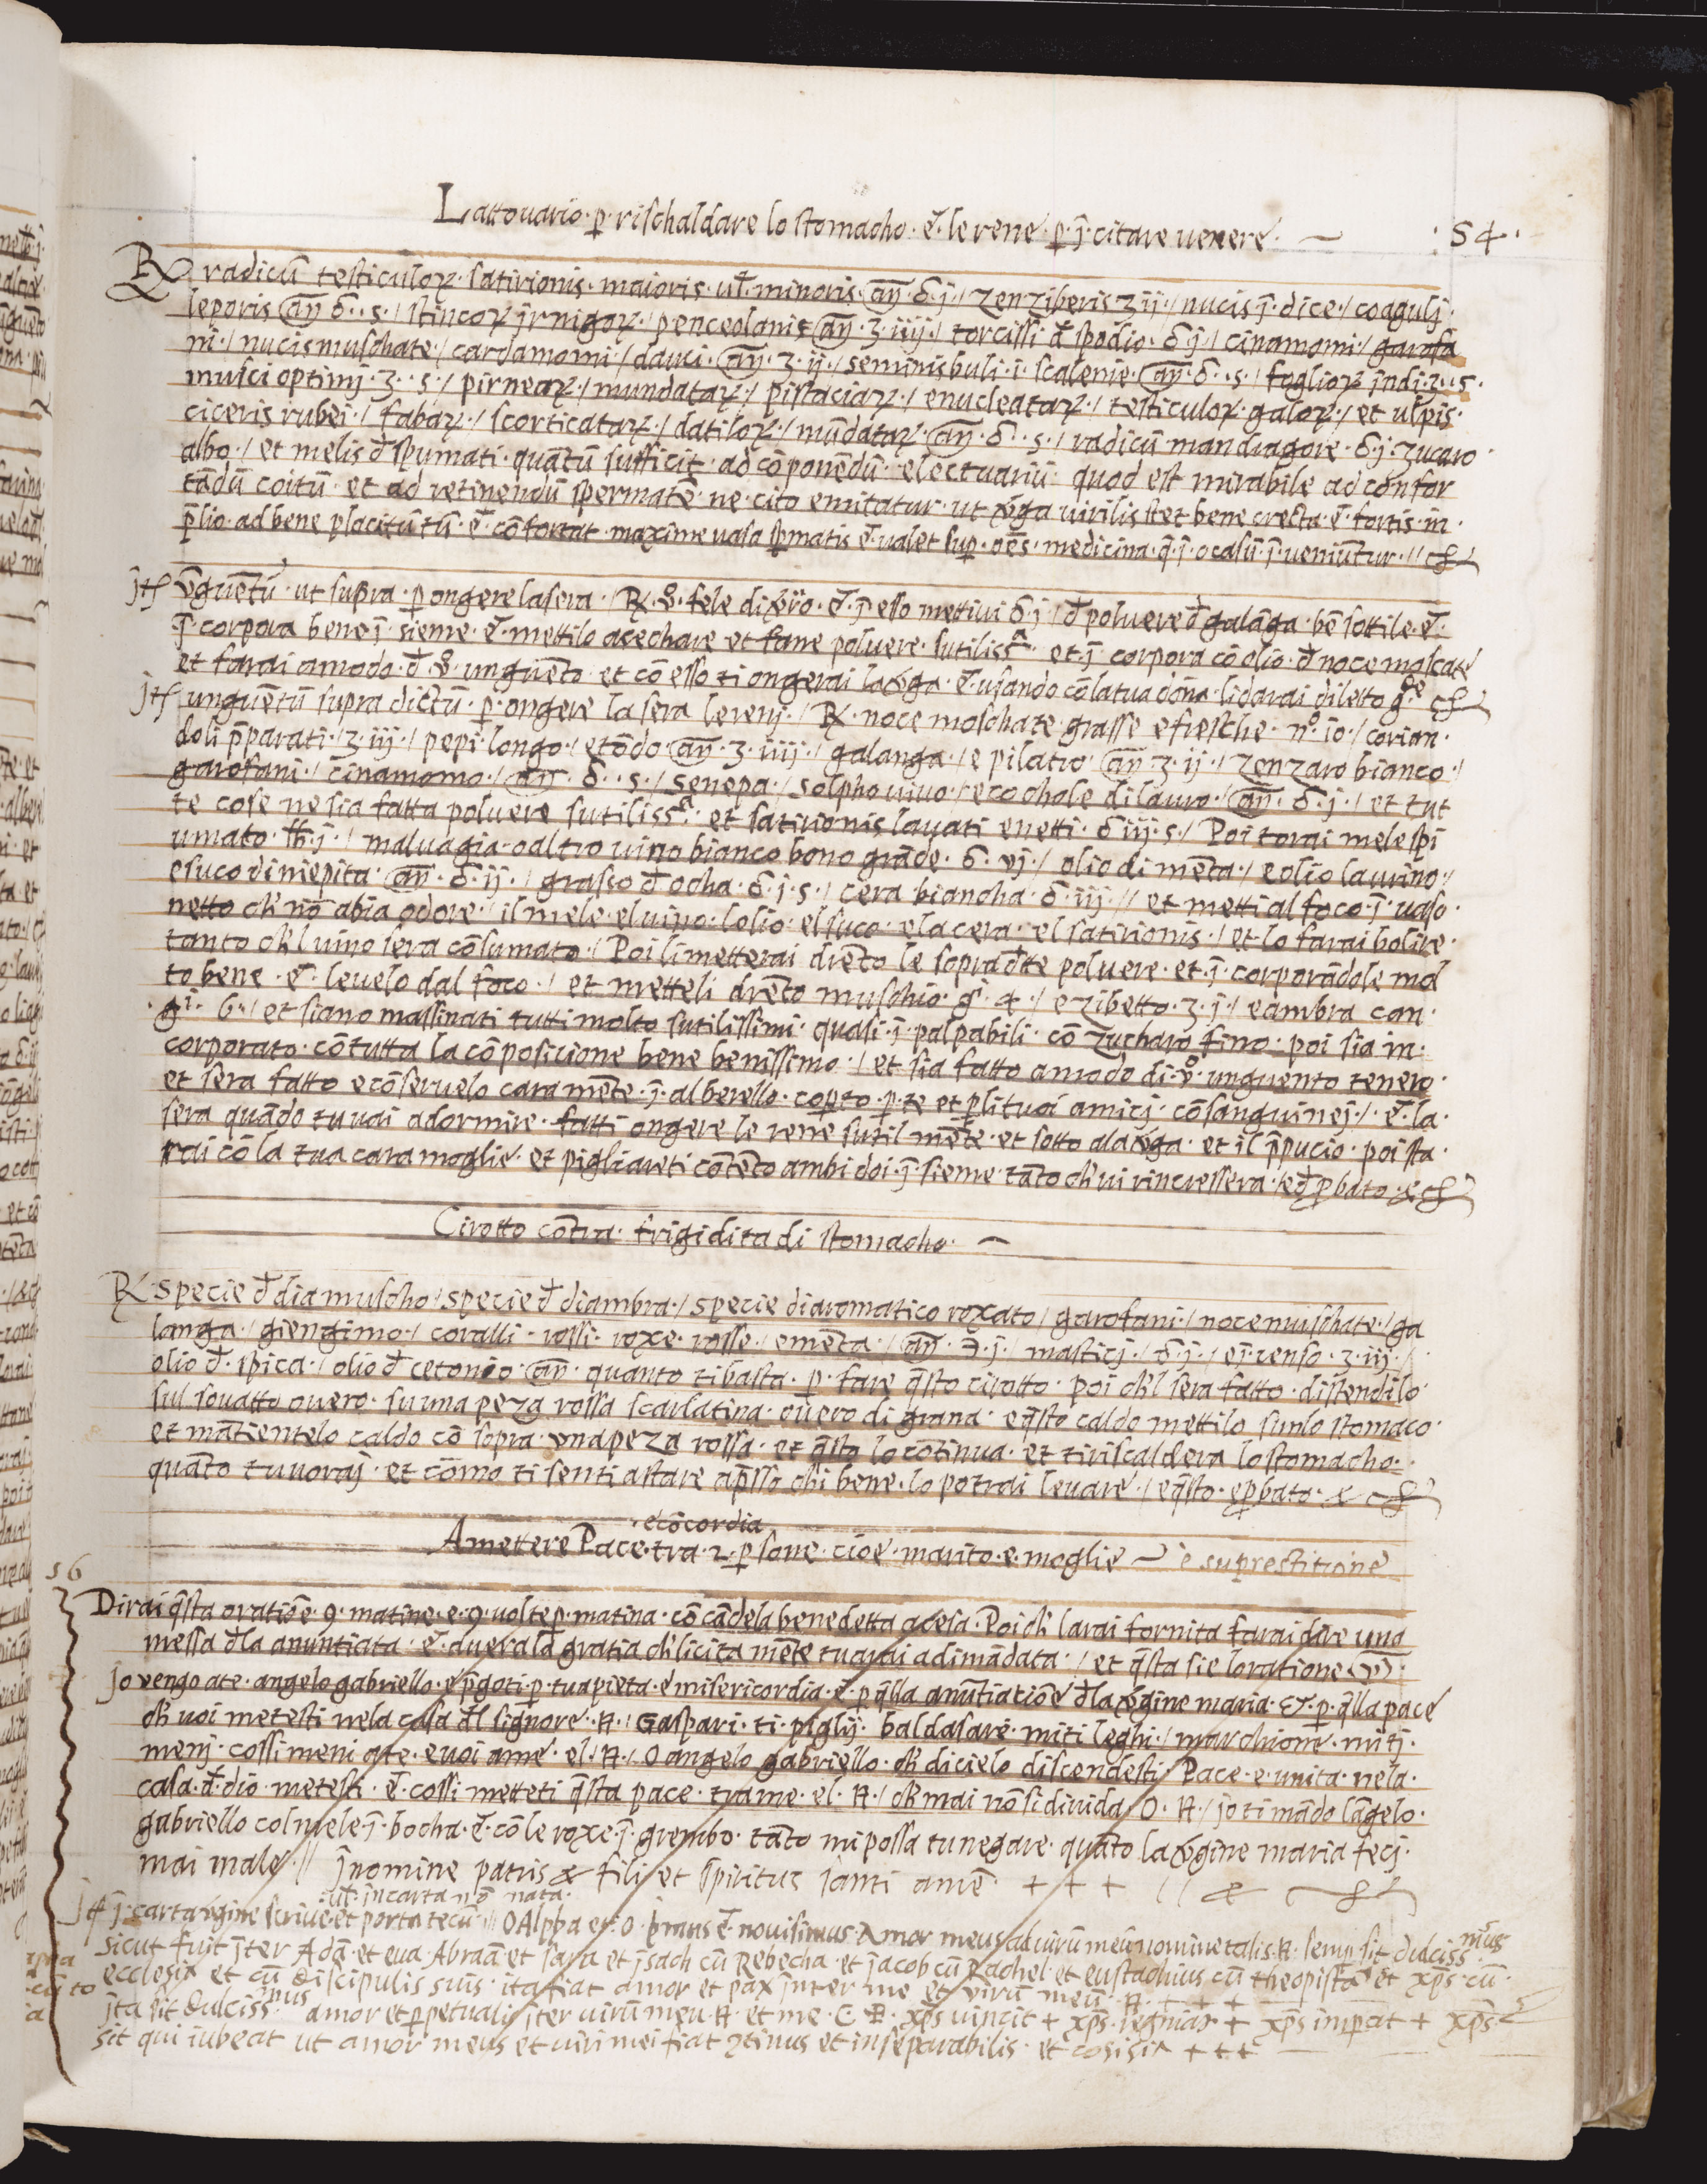 Lattouario · p̱ · rischaldare lo stomacho · & · le rene · p̱ · ĩ · citare uenere · ~
: 54 ·
℞ radicũ testiculoꝝ · satirionis · maioris · ul̃ · minoris · añ · ℥ · j · / zenziberis ʒ ij · / nucis ĩ · dice · / coagulj ·
leporis añ ℥ · · s · / stincoꝝ · / penceolanis añ · ʒ · iiij · / torcissi đ spodio · ℥ · j · / cinamomi · / garofa
ni · / nucis muschate · / cardamomi · / dauci · añ · ʒ · ij · / seminis buli · i · scalenie · añ · ℥ · · s · / foglioꝝ indi · ʒ · · s ·
musci optimj · ʒ · · s · / pinearꝝ · / mundataꝝ · / pistaciaꝝ · / enucleataꝝ · / testiculoꝝ · galoꝝ · / et ulpis ·
ciceris rubei · / fabaꝝ · / scorticataꝝ · / datiloꝝ · / mũdataꝝ · añ · ℥ · · s · / radicũ mandragore · ℥ · j · zucaro ·
albo · / et melis đ spumati · quãtũ sufficit · ad cõponẽdũ · electuariũ · quod est mirabile ad confor
tãdũ coitũ · et ad retinendũ spermatẽ · ne · cito emitatur · ut ỹga uirilis stet bene erecta · & · fortis · in ·
p̃lio · ad bene placitũ tũ · & · cõfortat · maxime uasa sp̱matis & · ualet sup̱ · oẽs · medicina · q̃ · ĩ · ocasũ · ĩ · ueniũtur · //
jtẽ ũguẽtũ · ut supra · p̱ ongere la sera · / ℞ · fele di · & · ĩ esso mettiui ℥ · j · / đ poluere đ galãga · bẽ sottile · & ·
ĩ corpora bene ĩ · sieme · & · mettilo asechare et fane poluere · sutilissᵃ · et · ĩ corpora cõ olio · đ noce moscate
et farai amodo · đ · unguẽto · et cõ esso ti ongerai la ỹga · & · usando cõ la tua dõna · li darai diletto gᵈᵉ
jtẽ unguẽtũ supra dictũ · p̱ · ongere la sera le renj · / ℞ · noce moschate grasse e fresche · nº · 10 · / corian ·
doli p̃parati · / ʒ · iij · / pepi longo · / e tõdo añ · ʒ · iiij · / galanga · / e pilatro añ ʒ · ij · / zenzaro bianco · /
garofani · / cinamomo · / añ · ℥ · · s · / senepa · / solpho uiuo · / e cochole di lauro · / añ · ℥ · j · / et tut
te cose ne sia fatta poluere sutilissᵃ · et satirionis lauati e netti · ℥ iij · s · / Poi torai mele spi
umato · ℔ · j · / maluagia · o altro uino bianco bono grãde · ℥ · vj · / olio di mẽta · / e olio laurino · /
e suco di niepita · añ · ℥ · ij · / grasso đ ocha · ℥ · j · s · / cera biancha · ℥ · iij · // et metti al foco · ĩ · uaso ·
netto ch̃ nõ abia odore · / il mele · el uino · lolio · el suco · e la cera · el satirionis · / et lo farai bolire ·
tanto ch̃l uino sera cõsumato · / Poi li metterai drẽto le sopradtte poluere · et · ĩ · corporãdole mol
to bene · & · leuelo dal foco · / et metteli drẽto muschio · gⁱ · 4 · / e zibetto · ʒ · j · / e ambra can ·
· gⁱ · 6 · / et siano massinati tutti molto sutilissimi · quasi · ĩ · palpabili · cõ zucharo fino · poi sia in ·
corporato · cõ tutta la cõposicione bene benissimo · / et sia fatto amodo di · unguento tenero ·
et sera fatto e cõseruelo caramẽte · ĩ · alberello · cop̱to · p̱ · te et p̱ li tuoi amicj · cõsanguinej · / · & · la ·
sera quãdo tu uai adormire · fatti ongere le rene sutilmẽte · et sotto ala ỹga · et il p̃pucio · poi sta ·
rai cõ la tua cara moglie · et pigliareti cõtẽto ambi doi · ĩ · sieme · tãto ch̃ ui rincressera ·
Cirotto cõtra · frigidita di stomacho · ~
℞ specie đ diamuscho / specie đ diambra · / specie diaromatico roxato / garofani · / noce muschate · / ga
langa · / giengimo · / coralli · rossi · roxe · rosse · / e mẽta · / añ · ℈ · j · / masticj · / ℥ · j · / e ĩ · censo · ʒ · iij · /
olio đ · spica · / olio đ cetonio añ · quanto ti basta · p̱ · fare q̃sto cirotto · poi ch̃l sera fatto · distendilo ·
sul souatto ouero · su una peza rossa scarlatina · ouero di grana · e q̃sto caldo mettilo sunlo stomaco ·
et mãtientelo caldo cõ sopra · una peza rossa · et q̃sto lo cõtinua · et ti riscaldera lo stomacho ·
quãto tu uoraj · et cõmo ti senti astare ap̃sso ch̃ bene · lo potrai leuare · / e q̃sto · e p̱bato ·
· e cõcordia
Amettere Pace · tra · 2 · p̱sone · cioe · marito · e · moglie ~ è suprestitione
56
Dirai q̃sta oratiõe · 9 · matine · e · 9 · uolte p̱ · matina · cõ cãdela benedetta acesa · Poi ch̃ larai fornita farai dire una
messa đla anuntiata · & · auerala gratia ch̃ licitamẽte tu arai adimãdata · / et q̃sta sie loratione
Jo vengo ate · angelo gabriello · e p̃goti · p̱ · tua pieta · e misericordia · & · p q̃lla anũtiatiõe đla ỹgine maria · & · p̱ · q̃lla pace
ch̃ uoi metesti nela casa đl signore · N · / Gaspari · ti · piglij · baldasare · miti leghi · / marchione · miti ·
menj · cossi meni ate · e uoi ame · el · N · / O angelo gabriello · ch̃ di cielo discendesti · Pace · e · unita · nela ·
casa · đ · dio · metesti · & · cossi metteti q̃sta pace · trame · el · N · / ch̃ mai nõ si diuida · O · N · / jo ti mãdo lãgelo ·
gabriello col miele · ĩ · bocha · & · cõ le roxe · ĩ · grembo · tãto mi possa tu negare · quãto la ỹgine maria fecj ·
mai male · // Jnomine patris & filij et spiritus santi amẽ · + + +
· ul̃ · in carta nõ nata ·
jtẽ ĩ · carta ỹgine scriue · et porta tecũ · // O Alpha et · O · primus & · nouisimus · Amor meus ad uirũ meũ nomine talis · N · semp̱ sit dulcissᵐᵘˢ
sicut fuit jter Adã · et eua · Abraã et sara et jsach cũ Rebecha · et jacob cũ Rachel · et eustachius cũ theopista et xp̃s · cũ ·
ecclesia et cũ discipulis suis · ita fiat amor et pax jnter me et virũ meũ · N · + + +
jta sit dulcissᵐᵘˢ amor et p̱petualis jter uirũ meũ · N · et me · xp̃s uincit + xp̃s · regnat + xp̃s imp̱at + xp̃s
sit qui iubeat ut amor meus et uiri mei fiat et inseparabilis · et + + +